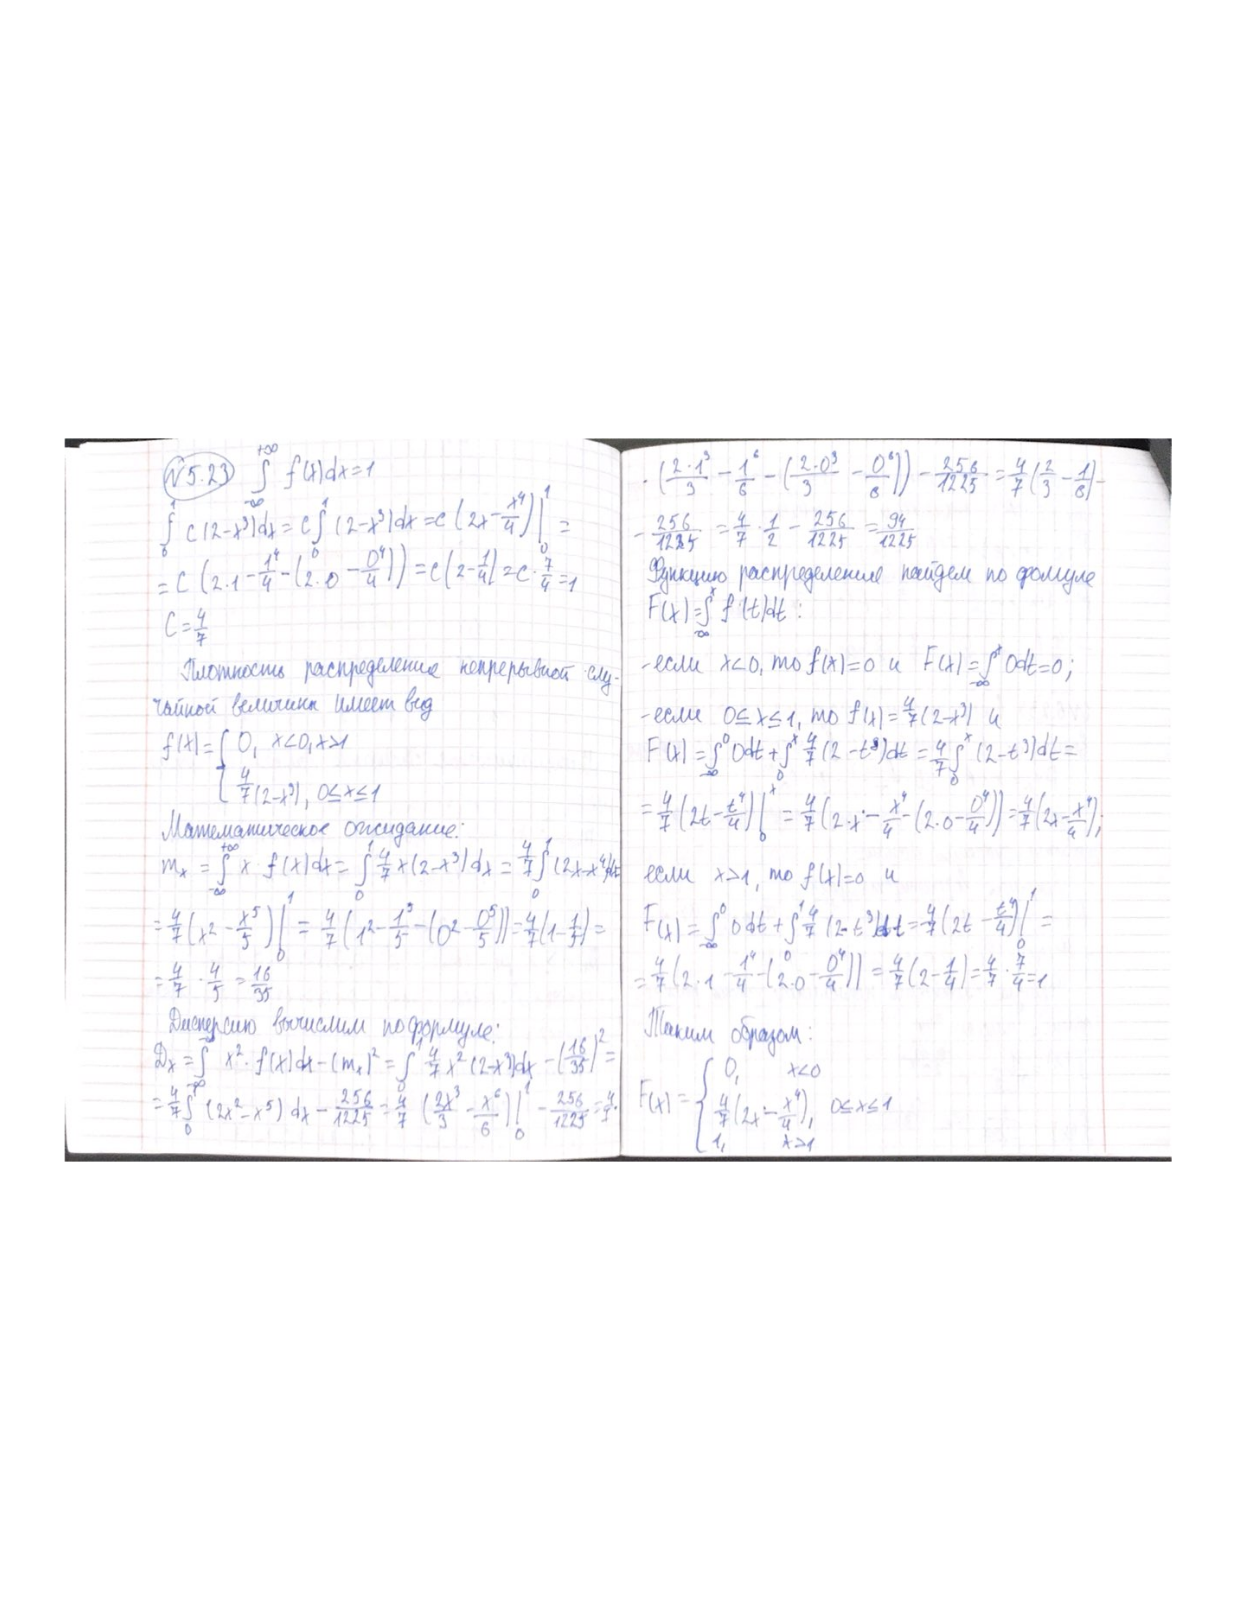 №5.23 ∫_{-∞}^{+∞} f(x)dx=1
∫_0^1 c(2-x³)dx = c∫_0^1 (2-x³)dx = c(2x-x⁴/4)|_0^1 =
= c(2·1-1⁴/4-(2·0-0⁴/4)) = c(2-1/4) = c·7/4=1
C=4/7
Плотность распределение непрерывной слу-
чайной величины имеет вид
f(x)={0, x<0, x>1
4/7(2-x³), 0≤x≤1
Математическое ожидание:
m_x = ∫_{-∞}^{+∞} x·f(x)dx = ∫_0^1 4/7 x(2-x³)dx = 4/7∫_0^1 (2x-x⁴)dx
= 4/7(x²-x⁵/5)|_0^1 = 4/7(1²-1⁵/5-(0²-0⁵/5)) = 4/7(1-1/5) =
= 4/7·4/5 = 16/35
Дисперсию вычислим по формуле:
D_x = ∫_{-∞}^{+∞} x²·f(x)dx-(m_x)² = ∫_0^1 4/7 x²(2-x³)dx-(16/35)² =
= 4/7∫_0^1 (2x²-x⁵)dx-256/1225 = 4/7(2x³/3-x⁶/6)|_0^1-256/1225 = 4/7·
·(2·1³/3-1⁶/6-(2·0³/3-0⁶/6))-256/1225 = 4/7(2/3-1/6)-
-256/1225 = 4/7·1/2-256/1225 = 94/1225
Функцию распределение найдем по формуле
F(x)=∫_{-∞}^x f(t)dt:
-если x<0, то f(x)=0 и F(x)=∫_{-∞}^x 0dt=0;
-если 0≤x≤1, то f(x)=4/7(2-x³) и
F(x)=∫_{-∞}^0 0dt+∫_0^x 4/7(2-t³)dt = 4/7∫_0^x (2-t³)dt =
= 4/7(2t-t⁴/4)|_0^x = 4/7(2·x-x⁴/4-(2·0-0⁴/4)) = 4/7(2x-x⁴/4),
если x>1, то f(x)=0 и
F(x)=∫_{-∞}^0 0dt+∫_0^1 4/7(2-t³)dt = 4/7(2t-t⁴/4)|_0^1 =
= 4/7(2·1-1⁴/4-(2·0-0⁴/4)) = 4/7(2-1/4) = 4/7·7/4=1
Таким образом:
F(x)={0, x<0
4/7(2x-x⁴/4), 0≤x≤1
1, x>1